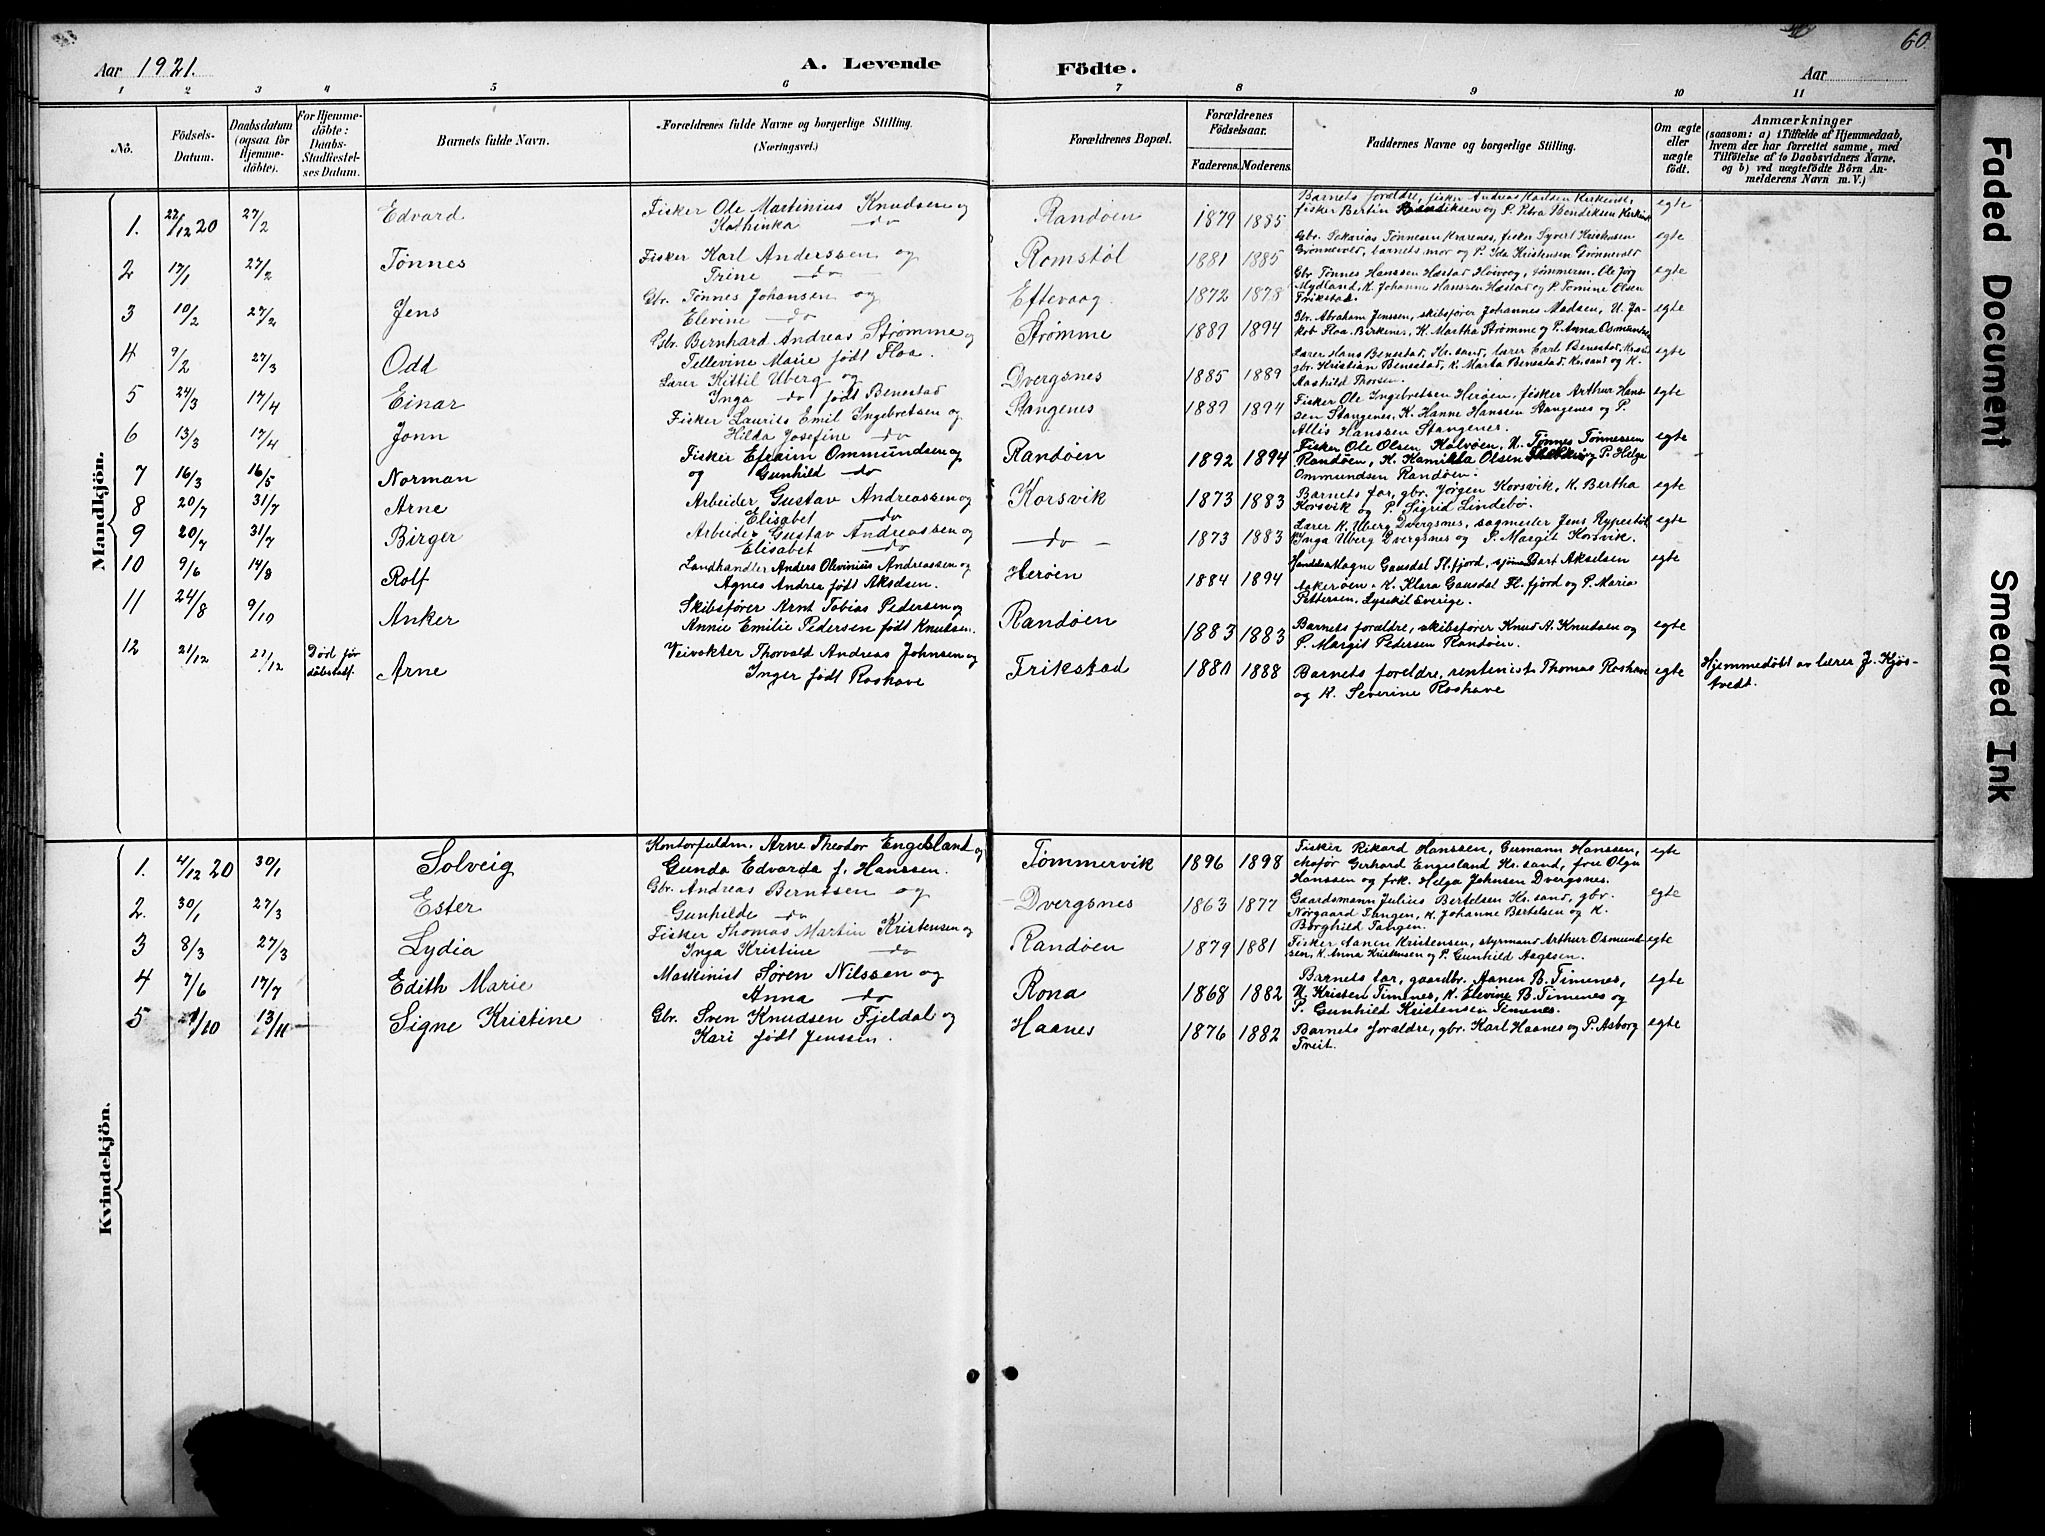 60
Aar 1921.
A. Levende
Födte.
Aar
1 2 3 4 5 6 7 8 9 10 11
No.
Födsels-
Datum.
Daabsdatum
(ogsaa for
Hjemme-
döbte).
For Hjemme-
döbte:
Daabs-
Stadfæstel-
ses Datum.
Barnets fulde Navn.
Forældrenes fulde Navne og borgerlige Stilling.
(Næringsvei.)
Forældrenes Bopæl.
Forældrenes
Födselsaar.
Faderens. Moderens.
Faddernes Navne og borgerlige Stilling.
Om ægte
eller
uægte
födt.
Anmærkninger
(saasom: a) i Tilfælde af Hjemmedaab,
hvem der har forrettet samme, med
Tilföielse af to Daabsvidners Navne,
og b) ved uægtefödte Börn An-
melderens Navn m. V.)
Mandkjön.
1. 22/12 20 27/2 Edvard
Fisker Ole Martinius Knudsen og
Kathinka do
Randøen 1879 1885
Barnets foreldre, fisker Andreas
fisker Bertin og P. Petra
egte
2 17/1 27/2 Tønnes
Fisker Karl Anderssen og
Trine do
Romstøl 1881 1885
Gbr. Sakarias Tønnesen Kvarenes, fisker Syvert Kristensen
Grønnevold, barnets mor og P. Ida Kristensen Grønnevold
egte
3 10/2 27/2 Jens
Gbr. Tønnes Johansen og
Elevine do
Eftevaag 1872 1878
Gbr. Tønnes Hanssen Hæstad Høivaag, tømmerm. Ole Jørg
Mydland, K. Johanne Hanssen Hæstad og P. Tomine Olsen
Frikstad.
egte
4 9/2 27/3 Odd
Gbr. Bernhard Andreas Strømme og
Tellevine Marie født Floa.
Strømme 1889 1894
Gbr. Abraham Jenssen, skibsfører Johannes Madsen, U. Ja-
kob Floa Birkenes, K. Martha Strømme og P. Anna
egte
5 24/3 17/4 Einar
Lærer Kittil Uberg og
Inga do født Benestad
Dvergsnes 1885 1889
Lærer Hans Benestad, Kr.sand, lærer Carl Benestad,
gbr. Kristian Benestad, K. Marta Benestad Kr.sand og K.
Aashild Thorsen.
egte
6 13/3 17/4 Jonn
Fisker Laurits Emil Ingebretsen og
Hilda Josefine do
Stangenes 1889 1894
Fisker Ole Ingebretsen Herøen, fisker Arthur Hans-
sen Stangenes, K. Hanne Hanssen Stangenes og P.
Allis Hanssen Stangenes.
egte
7 16/3 16/5 Norman
Fisker Efraim Ommundsen og
og Gunhild do
Randøen 1892 1894
Fisker Ole Olsen Kalvøen, U. Tønnes Tønnessen
Randøen, K. Hamilla Olsen og P. Helga
Ommundsen Randøen.
egte
8 20/7 31/7 Arne
Arbeider Gustav Andreassen og
Elisabet do
Korsvik 1873 1883
Barnets far, gbr. Jørgen Korsvik, K. Bertha
Korsvik og P. Sigrid Lindebø.
egte
9 20/7 31/7 Birger
Arbeider Gustav Andreassen og
Elisabet do
do 1873 1883
Lærer K. Uberg Dvergsnes, sagmester Jens Rypestøl
Inga Uberg Dvergsnes og P. Margit Korsvik.
egte
10 9/6 14/8 Rolf
Landhandler Anders Olivinius Andreassen og
Agnes Andrea født Akselsen.
Herøen 1884 1894
Magne Gausdal Fl.fjord, Bart Akselsen
Aakerøen, K. Klara Gausdal Fl. fjord og P. Maria
Pettersen, Lysekil Sverige.
egte
11 24/8 9/10 Anker
Skibsfører Arnt Tobias Pedersen og
Annie Emilie Pedersen født Knudsen.
Randøen 1883 1883
Barnets foreldre, skibsfører Knud A. Knudsen og
P. Margit Pedersen Randøen.
egte
12 21/12 21/12 Død før
dåbstadf. Arne
Veivokter Thorvald Andreas Johnsen og
Inger født Roshave
Frikstad 1880 1888
Barnets foreldre, rentenist Thomas Roshave
og K. Severine Roshave
egte
Hjemmedøbt av lærer J. Kjøs-
tvedt.
Kvindekjön.
1. 4/12 20 30/1 Solveig
Kontorfuldm. Arne Theodor Engesland og
Gunda Edvarda f. Hanssen.
Tømmervik 1896 1898
Fisker Rikard Hanssen, Gumann Hanssen,
chafør Gerhard Engesland Kr.sand, frue Olga
Hanssen og frk. Helga Johnsen Dvergsnes.
egte
2. 30/1 27/3 Ester
Gbr. Andreas Berntsen og
Gunhilde do
Dvergsnes 1863 1877
Gaardsmann Julius Bertelsen Kr.sand, gbr.
Nørgaard Tangen, K. Johanne Bertelsen og K.
Borghild Tangen.
egte
3 8/3 27/3 Lydia
Fisker Thomas Martin Kristensen og
Inga Kristine do
Randøen 1879 1881
Fisker Aanen Kristensen, styrmand Arthur Osmund-
sen, K. Anna Kristensen og P. Gunhild Aagesen.
egte
4 7/6 17/7 Edith Marie
Maskinist Søren Nilssen og
Anna do
Rona 1868 1882
Barnets far, gaardbr. Aanen B. Timenes,
U. Kristen Timenes, K. Elevine B. Timenes og
P. Gunhild Kristensen Timenes.
egte
5 /10 13/11 Signe Kristine
Gbr. Sven Knudsen Fjeldal og
Kari født Jenssen.
Haanes 1876 1882
Barnets foreldre, gbr. Karl Haanes og P. Asborg
Treit.
egte
Faded Document
Smeared Ink